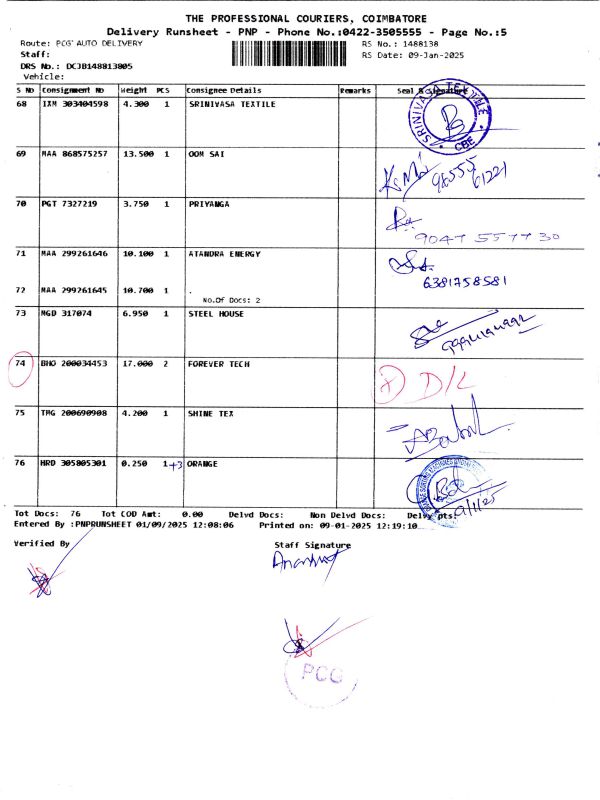 THE PROFESSIONAL COURIERS, COIMBATORE
Delivery Runsheet - PNP - Phone No.:0422-3505555 - Page No.:5
Route: PCG' AUTO DELIVERY RS No.: 1488138
Staff: RS Date: 09-Jan-2025
DRS No.: DCJB148813805
Vehicle:
S No Consignment No Weight PCS Consignee Details Remarks Seal & Signature
68 IXM 303404598 4.300 1 SRINIVASA TEXTILE
SRINIVASA TEXTILE CBE
69 MAA 868575257 13.500 1 OOM SAI
96555
61221
70 PGT 7327219 3.750 1 PRIYANGA
9047 5577 30
71 MAA 299261646 10.100 1 ATANDRA ENERGY
6381758581
72 MAA 299261645 10.700 1 .
No.Of Docs: 2
73 MGD 317074 6.950 1 STEEL HOUSE
74 BHO 200034453 17.000 2 FOREVER TECH
D/L
75 TMG 200690908 4.200 1 SHINE TEX
76 HRD 305805301 0.250 1+3 ORANGE
9/1/25
Tot Docs: 76 Tot COD Amt: 0.00 Delvd Docs: Non Delvd Docs: Delvy pts:
Entered By :PNPRUNSHEET 01/09/2025 12:08:06 Printed on: 09-01-2025 12:19:10
Verified By Staff Signature
PCG